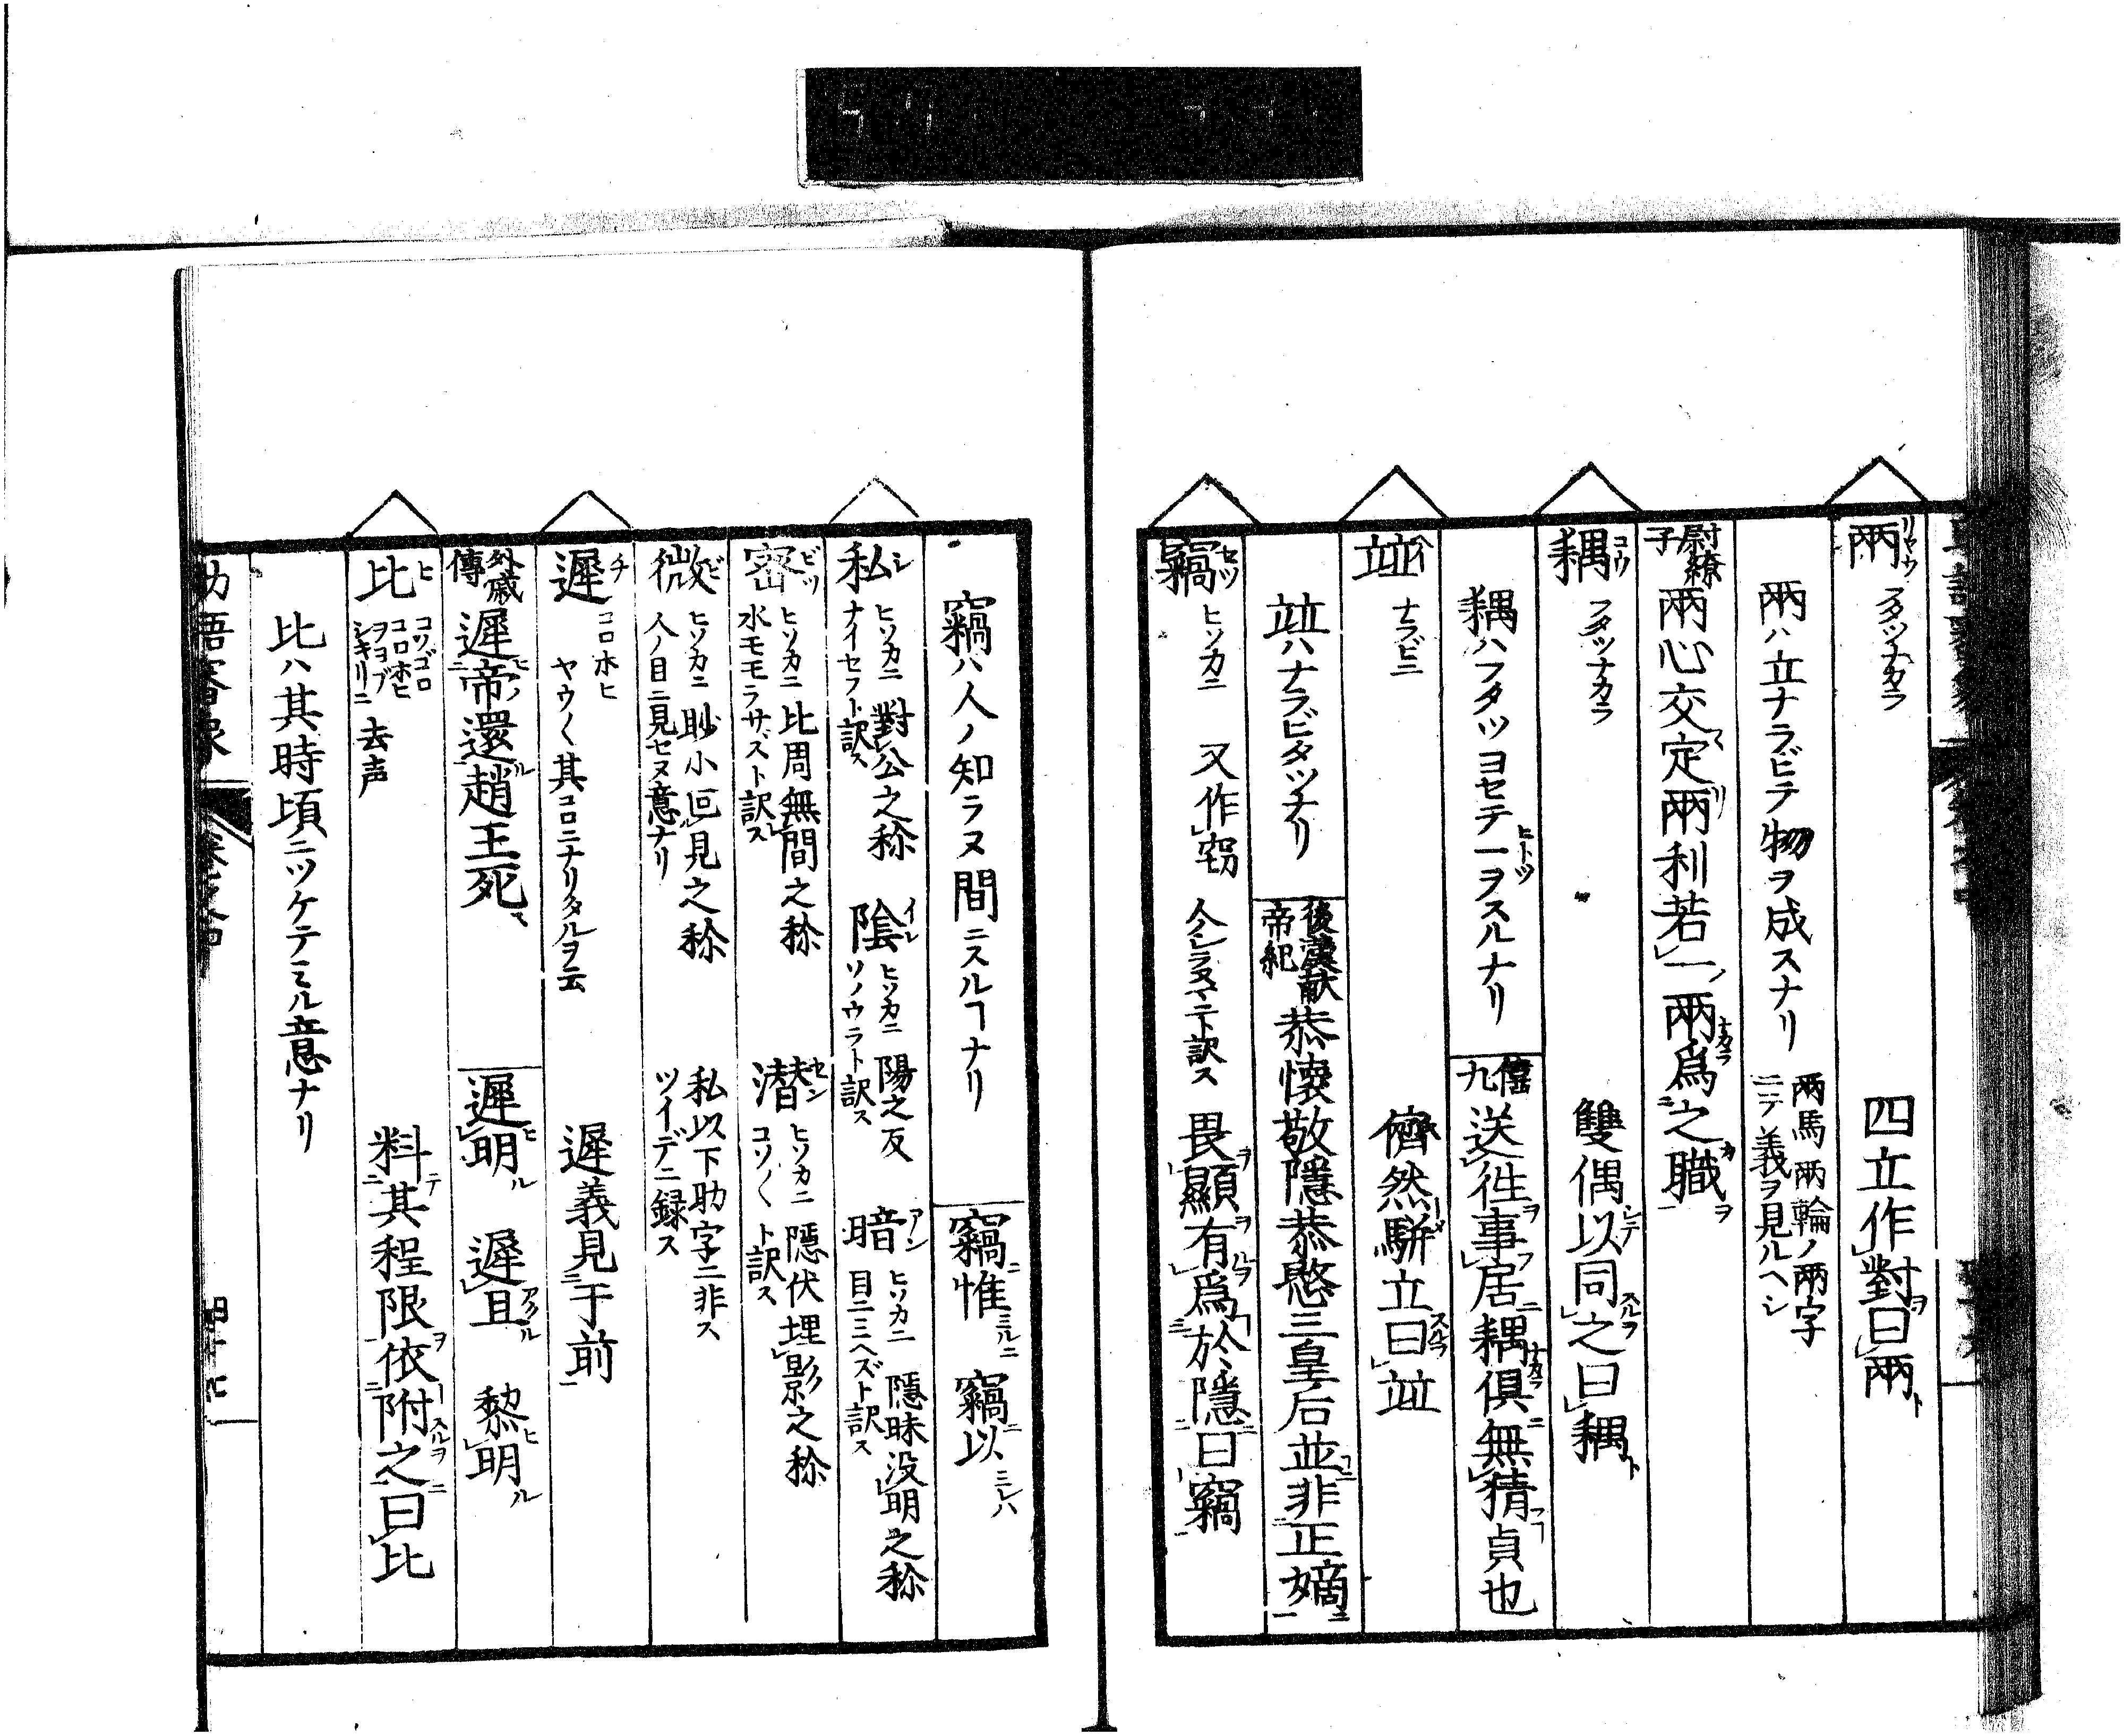 兩 リヤウ フタツナカラ 四立作對曰兩
兩ハ立ナラビテ物ヲ成スナリ 兩馬兩輪ノ兩字ニテ義ヲ見ルヘシ
尉繚子 兩心交定兩利若一兩爲之職
耦 コウ フタツナカラ 雙偶以同之曰耦
耦ハフタツヨセテ一ヲスルナリ 僖九 送往事居耦俱無猜貞也
竝 ナラビニ 儕然駢立曰竝
竝ハナラビタツナリ 後漢献帝紀 恭懐敬隱恭愍三皇后並非正嫡
竊 セツ ヒソカニ 又作窃 人シラヌマニト訳ス 畏顯有爲於隱曰竊
竊ハ人ノ知ラヌ間ニスルヿナリ 竊惟ミルニ 竊以ミレハ
私 シ ヒソカニ ナイセフト訳ス 對公之称 陰 イン ヒソカニ ソノウラト訳ス 陽之反 暗 アン ヒソカニ 目ニミヘズト訳ス 隱昧没明之称
密 ビツ ヒソカニ 水モモラサズト訳ス 比周無間之称 潜 セン ヒソカニ コソ〱ト訳ス 隱伏埋影之称
微 ビ ヒソカニ 人ノ目ニ見セヌ意ナリ 眇小叵見之称 私以下助字ニ非ス ツイデニ録ス
遲 チ コロホヒ ヤウ〱其コロニナリタルヲ云 遲義見于前
外戚傳 遲帝還趙王死 遲明 遲且 黎明
比 ヒ コノゴロ コロホヒ ヲヨブ シキリニ 去声 料其程限依附之曰比
比ハ其時頃ニツケテミル意ナリ
助語審象